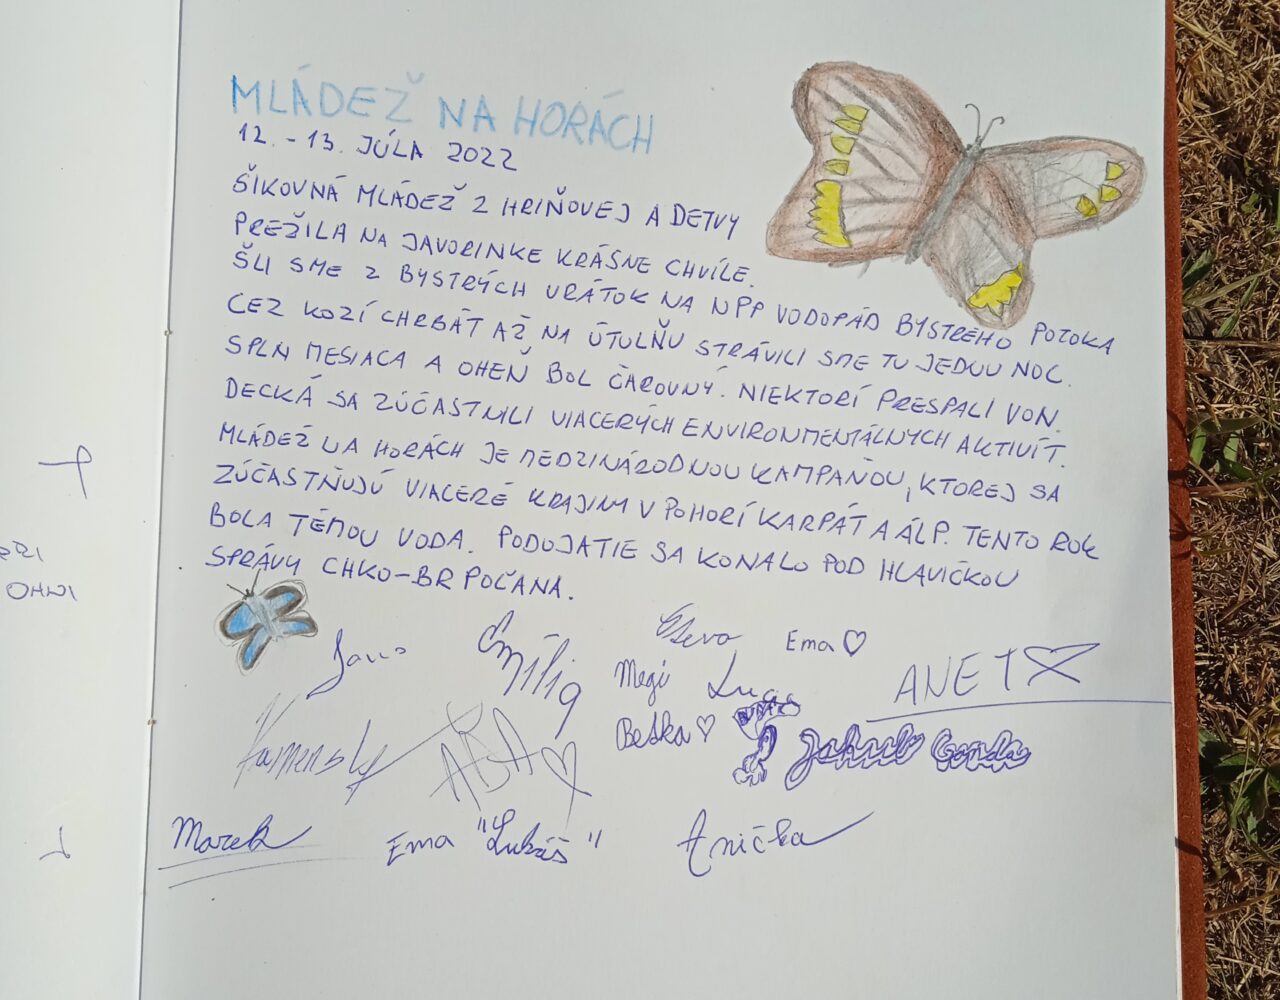 MLÁDEŽ NA HORÁCH
12. - 13. JÚLA 2022
ŠIKOVNÁ MLÁDEŽ Z HRIŇOVEJ A DETVY
PREŽILA NA JAVORINKE KRÁSNE CHVÍLE.
ŠLI SME Z BYSTRÝCH VRÁTOK NA NPP VODOPÁD BYSTRÉHO POTOKA
CEZ KOZÍ CHRBÁT AŽ NA ÚTULŇU STRÁVILI SME TU JEDNU NOC.
SPLN MESIACA A OHEŇ BOL ČAROVNÝ. NIEKTORÍ PRESPALI VON.
DECKÁ SA ZÚČASTNILI VIACERÝCH ENVIRONMENTÁLNYCH AKTIVÍT.
MLÁDEŽ NA HORÁCH JE MEDZINÁRODNOU KAMPAŇOU, KTOREJ SA
ZÚČASTŇUJÚ VIACERÉ KRAJINY V POHORÍ KARPÁT A ÁLP. TENTO ROK
BOLA TÉMOU VODA. PODUJATIE SA KONALO POD HLAVIČKOU
SPRÁVY CHKO-BR POĽANA.
Jano Emília Ema
Megi Lucas ANET
Kamensky Beťka Jakub Gonda
Marek Ema "Lukáš" Anička
OHNI